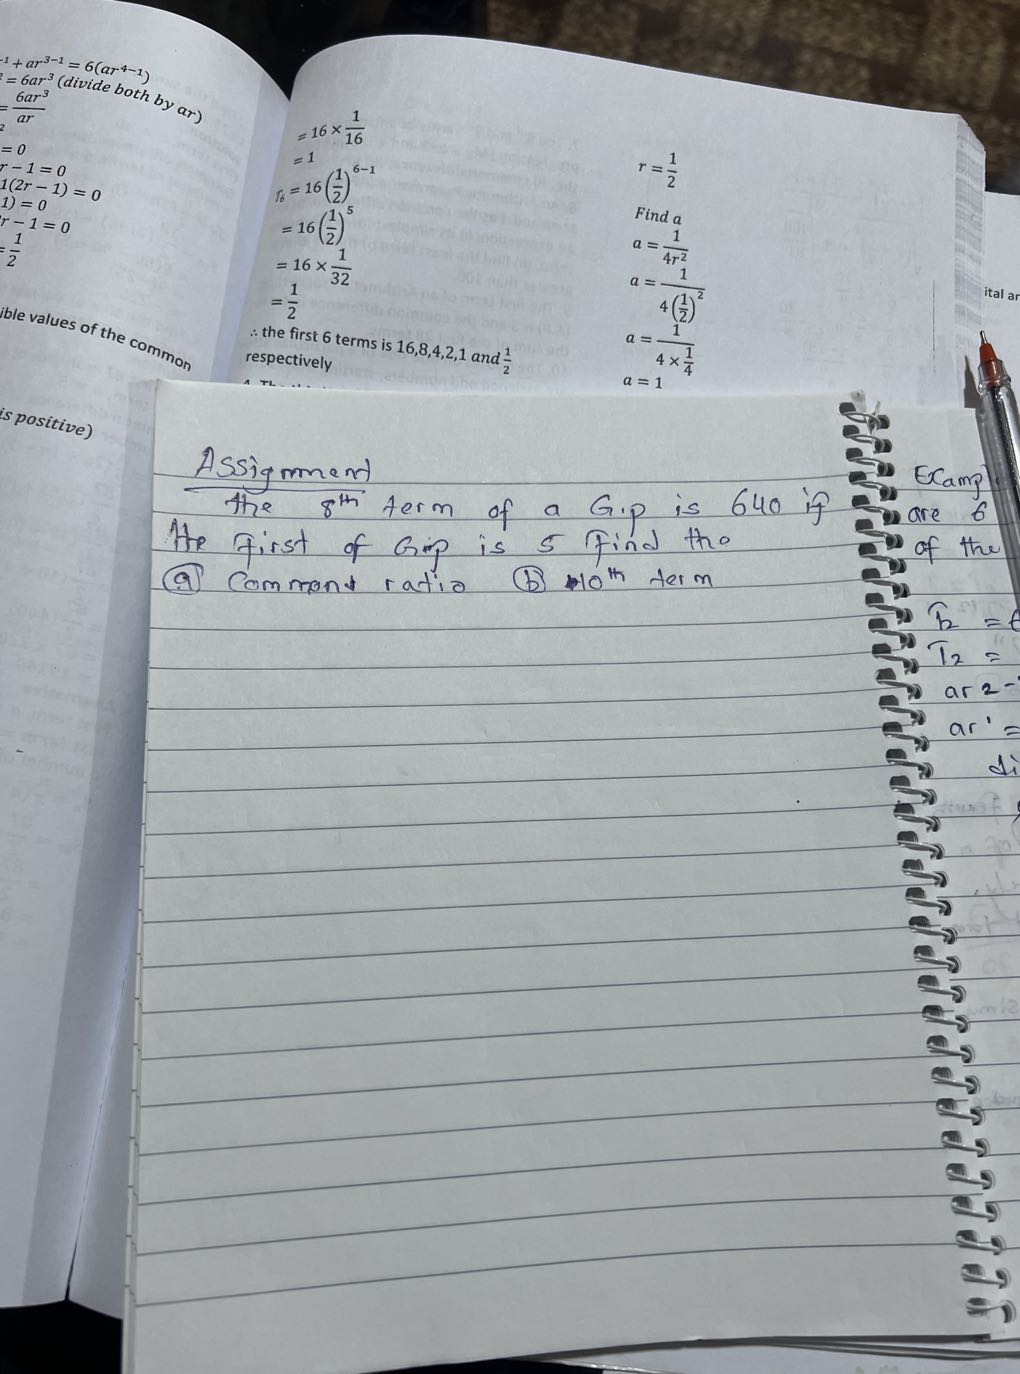 -1 + ar³⁻¹ = 6(ar⁴⁻¹)
² = 6ar³ (divide both by ar)
= 6ar³/ar
2
= 0
r − 1 = 0
1(2r − 1) = 0
1) = 0
r − 1 = 0
= 1/2
ible values of the common
is positive)
= 16 × 1/16
= 1
T₆ = 16(1/2)⁶⁻¹
= 16(1/2)⁵
= 16 × 1/32
= 1/2
∴ the first 6 terms is 16,8,4,2,1 and 1/2
respectively
r = 1/2
Find a
a = 1/4r²
a = 1/4(1/2)²
a = 1/(4 × 1/4)
a = 1
ital ar
Assignment
the 8th term of a G.p is 640 if
the first of G.p is 5 find the
(a) Common ratio (b) 10th term
Examp
are 6
of the
T2 = 6
T2 =
ar2-
ar' =
di